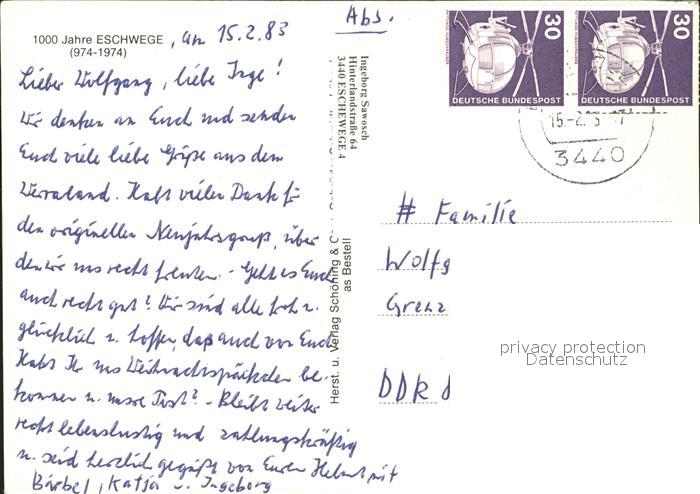 1000 Jahre ESCHWEGE , am 15.2.83
(974-1974)
Lieber Wolfgang, liebe Inge!
Wir denken an Euch und senden
Euch viele liebe Grüße aus dem
Werraland. Habt vielen Dank für
den originellen Neujahrsgruß, über
den wir uns recht freuten. - Geht es Euch
auch recht gut? Wir sind alle froh u.
glücklich u. hoffen, daß auch von Euch.
Habt Ihr das Weihnachtspäckchen be-
kommen u. unsere Post? - Bleibt weiter
recht lebenslustig und zahlungskräftig
u. seid herzlich gegrüßt von Euren Helmut mit
Bärbel, Katja u. Ingeborg
Herst. u. Verlag Schöning & C
as Bestell
Abs.
Ingeborg Sawosch
Hinterlandstraße 64
3440 ESCHEWEGE 4
30
DEUTSCHE BUNDESPOST
30
DEUTSCHE BUNDESPOST
15.-2.
3440
# Familie
Wolfg
Grenz
DDR
privacy protection
Datenschutz